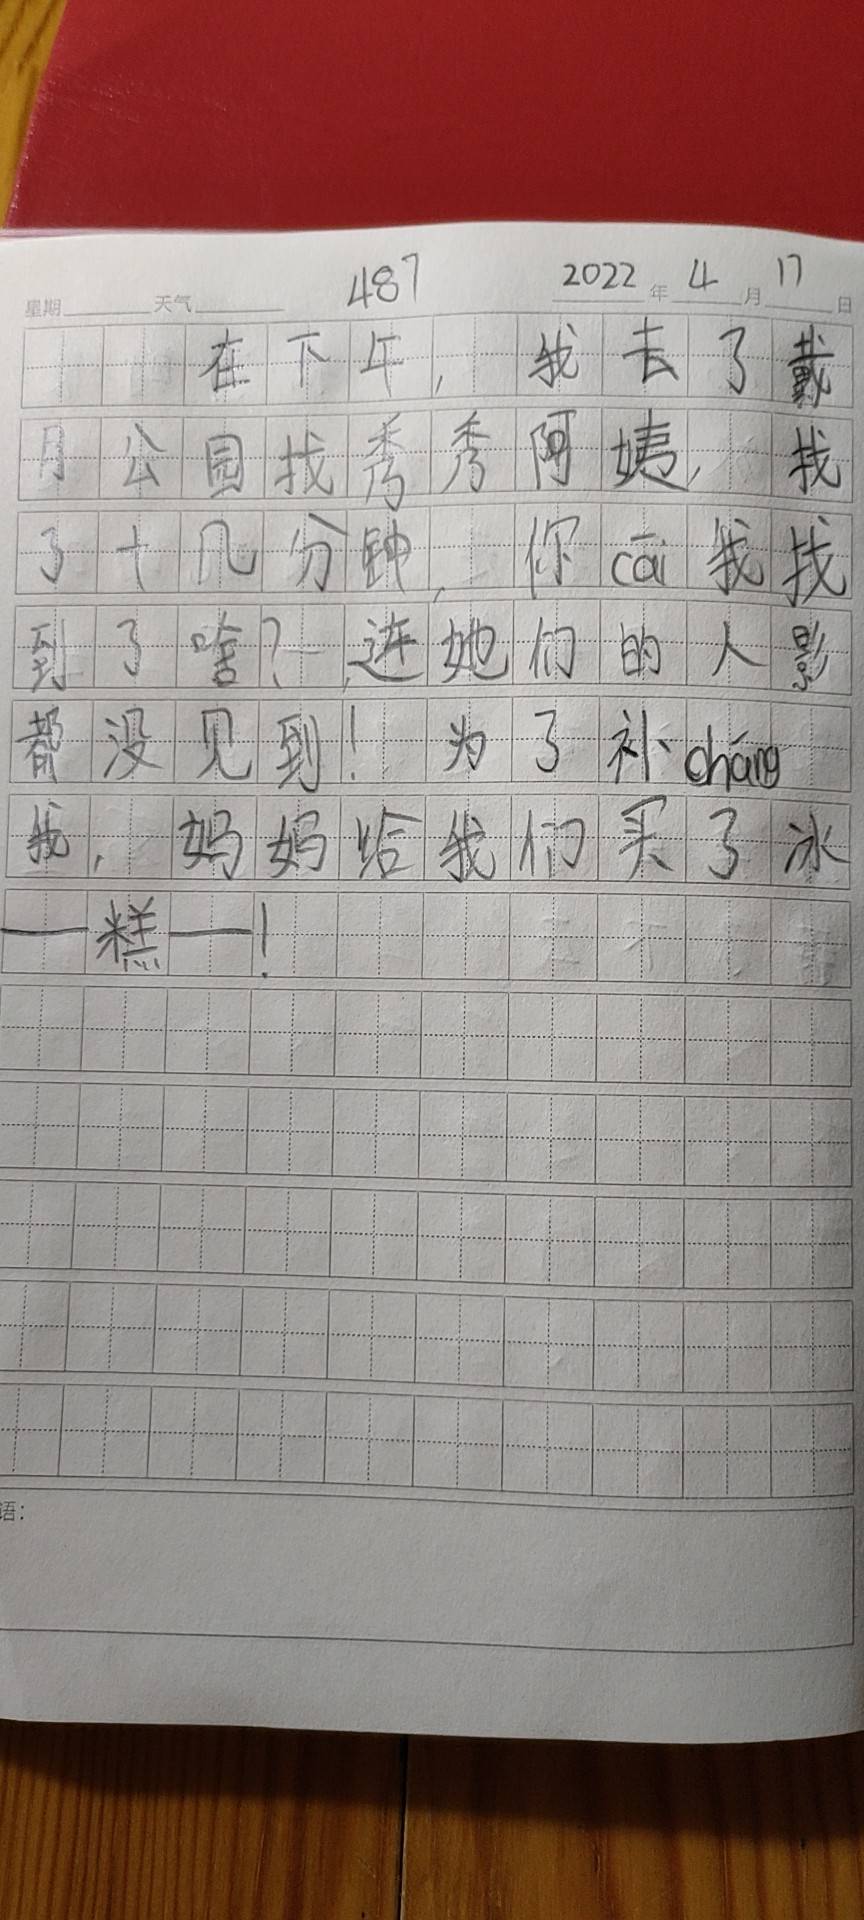 星期 天气 487 2022 年 4 月 17 日
在下午，我去了戴
月公园找秀秀阿姨，找
了十几分钟，你cāi我找
到了啥？连她们的人影
都没见到！为了补cháng
我，妈妈给我们买了冰
—糕—！
语：